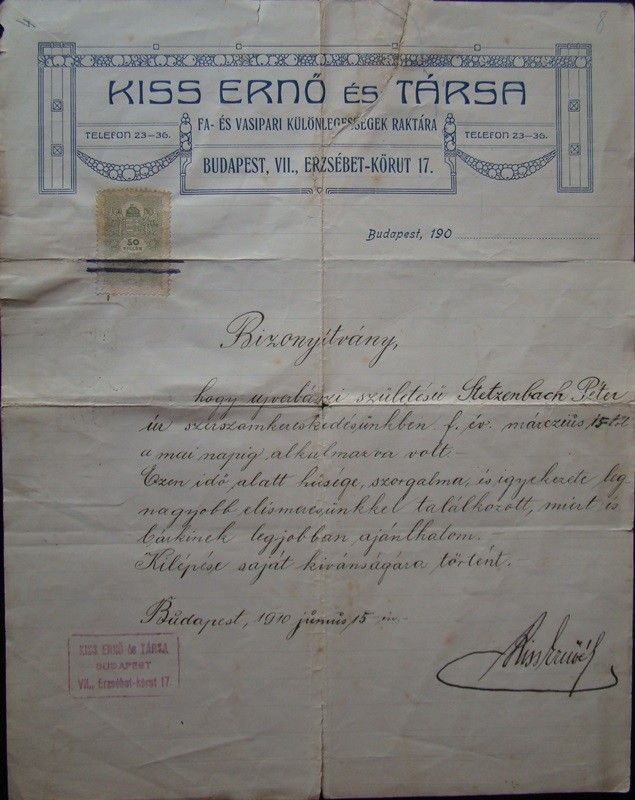 8
KISS ERNŐ és TÁRSA
FA- ÉS VASIPARI KÜLÖNLEGESSÉGEK RAKTÁRA
TELEFON 23-36.
TELEFON 23-36.
BUDAPEST, VII., ERZSÉBET-KÖRUT 17.
50
FILLÉR
Budapest, 190
Bizonyítvány,
hogy ujverbászi születésü Stetzenbach Péter
úr szerszámkereskedésünkben f. év. márczius 15-től
a mai napig alkalmazva volt.-
Ezen idő alatt hűsége, szorgalma, és igyekezete leg
nagyobb elismerésünkkel találkozott, miért is
bárkinek legjobban ajánlhatom.
Kilépése saját kivánságára történt.-
Budapest, 1910 június 15 én.-
KISS ERNŐ és TÁRSA
BUDAPEST
VII., Erzsébet-körut 17.
Kiss Ernő és